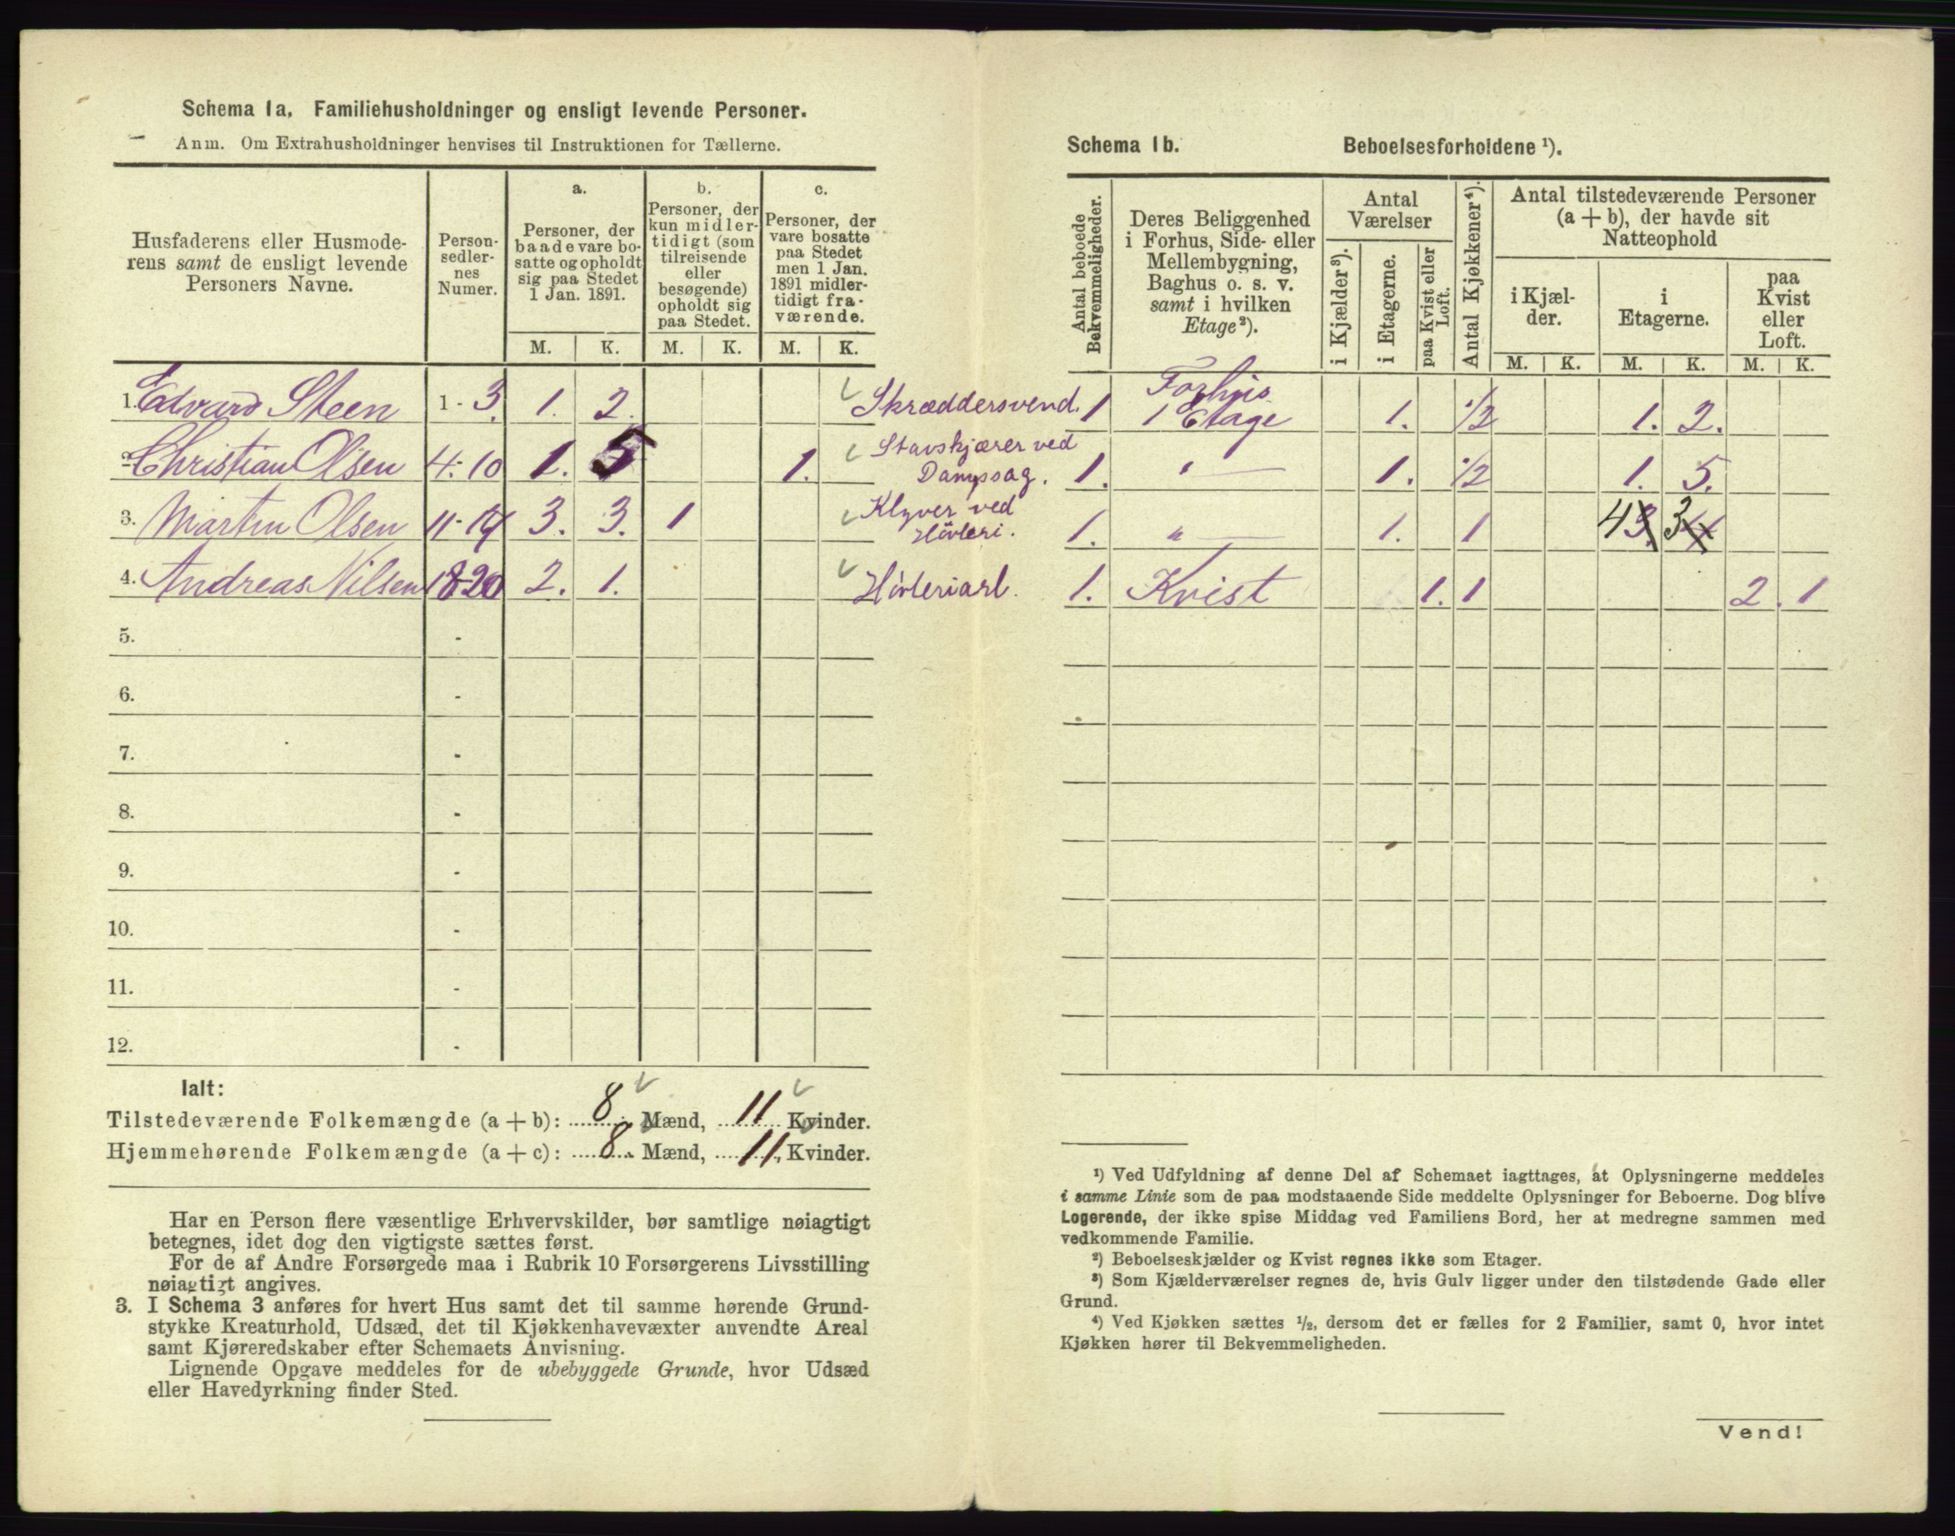 Schema 1a. Familiehusholdninger og ensligt levende Personer.
Anm. Om Extrahusholdninger henvises til Instruktionen for Tællerne.
Husfaderens eller Husmode-
rens samt de ensligt levende
Personers Navne.
Person-
sedler-
nes
Numer.
a.
Personer, der
baade vare bo-
satte og opholdt
sig paa Stedet
1 Jan. 1891.
b.
Personer, der
kun midler-
tidigt (som
tilreisende
eller
besøgende)
opholdt sig
paa Stedet.
c.
Personer, der
vare bosatte
paa Stedet
men 1 Jan.
1891 midler-
tidigt fra-
værende.
M. K. M. K. M. K.
1. Edvard Steen 1 - 3. 1. 2. Skræddersvend.
2. Christian Olsen 4 - 10 1. 5 1. Stavskjærer ved
Dampsag.
3. Martin Olsen 11 - 17 3. 3. 1 Klyver ved
Høvleri.
4. Andreas Nilsen 18-20 2. 1. Høvleriarb.
5. -
6. -
7. -
8. -
9. -
10. -
11. -
12. -
Ialt:
Tilstedeværende Folkemængde (a + b): 8 Mænd, 11 Kvinder.
Hjemmehørende Folkemængde (a + c): 8 Mænd, 11 Kvinder.
Har en Person flere væsentlige Erhvervskilder, bør samtlige nøiagtigt
betegnes, idet dog den vigtigste sættes først.
For de af Andre Forsørgede maa i Rubrik 10 Forsørgerens Livsstilling
nøiagtigt angives.
3. I Schema 3 anføres for hvert Hus samt det til samme hørende Grund-
stykke Kreaturhold, Udsæd, det til Kjøkkenhavevæxter anvendte Areal
samt Kjøreredskaber efter Schemaets Anvisning.
Lignende Opgave meddeles for de ubebyggede Grunde, hvor Udsæd
eller Havedyrkning finder Sted.
Schema 1b. Beboelsesforholdene ¹).
Antal beboede
Bekvemmeligheder.
Deres Beliggenhed
i Forhus, Side- eller
Mellembygning,
Baghus o. s. v.
samt i hvilken
Etage²).
Antal
Værelser
i Kjælder³).
i Etagerne.
paa Kvist eller
Loft.
Antal Kjøkkener⁴).
Antal tilstedeværende Personer
(a + b), der havde sit
Natteophold
i Kjæl-
der.
i
Etagerne.
paa
Kvist
eller
Loft.
M. K. M. K. M. K.
1 Forhus
1 Etage 1. 1/2 1. 2.
1. " 1. 1/2 1. 5.
1. " 1. 1 4 3. 3 4
1. Kvist 1. 1 2. 1
¹) Ved Udfyldning af denne Del af Schemaet iagttages, at Oplysningerne meddeles
i samme Linie som de paa modstaaende Side meddelte Oplysninger for Beboerne. Dog blive
Logerende, der ikke spise Middag ved Familiens Bord, her at medregne sammen med
vedkommende Familie.
²) Beboelseskjælder og Kvist regnes ikke som Etager.
³) Som Kjælderværelser regnes de, hvis Gulv ligger under den tilstødende Gade eller
Grund.
⁴) Ved Kjøkken sættes ½, dersom det er fælles for 2 Familier, samt 0, hvor intet
Kjøkken hører til Bekvemmeligheden.
Vend!